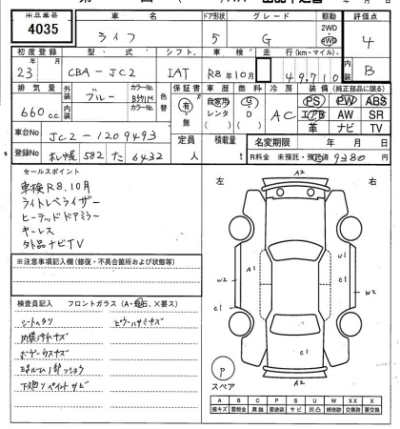 出品番号
車 名
ドア形状
グレード
駆動
評価点
4035
ライフ
5
G
2WD
4WD
4
初度登録
型 式
シフト
車 検
走 行(km・マイル)
内装
B
23 年 月
CBA-JC2
IAT
R8年10月
49,710
排気量
外装
ブルー
カラーNo.
保証書
車 歴
燃 料
冷 房
装 備(純正部品に限る)
660 c.c.
内装
カラーNo.
有・無
自家用
レンタ
G
D
AC
PS PW ABS
エアB AW SR
革 ナビ TV
車台No
JC2-1209493
定員
人
積載量
t
名変期限 年 月 日
登録No
札幌 582 た 6432
R料金 未預託・預託済 9380 円
セールスポイント
車検R8.10月
ライトレベライザー
ヒーテッドドアミラー
キーレス
社外品ナビTV
※注意事項記入欄(修復・不具合箇所および状態等)
検査員記入 フロントガラス(A・飛石、×要ス)
シートヘタリ
内張キズ
ボデーウスキズ
下廻りペイントサビ
左
右
A2
W2
A1
U1
C1
W2
C1
C1
A2
P
スペア
A B C P S U W X XX
線キズ 要板金 腐 蝕 要塗装 サ ビ 凹 凸 補修跡 交換跡 要交換